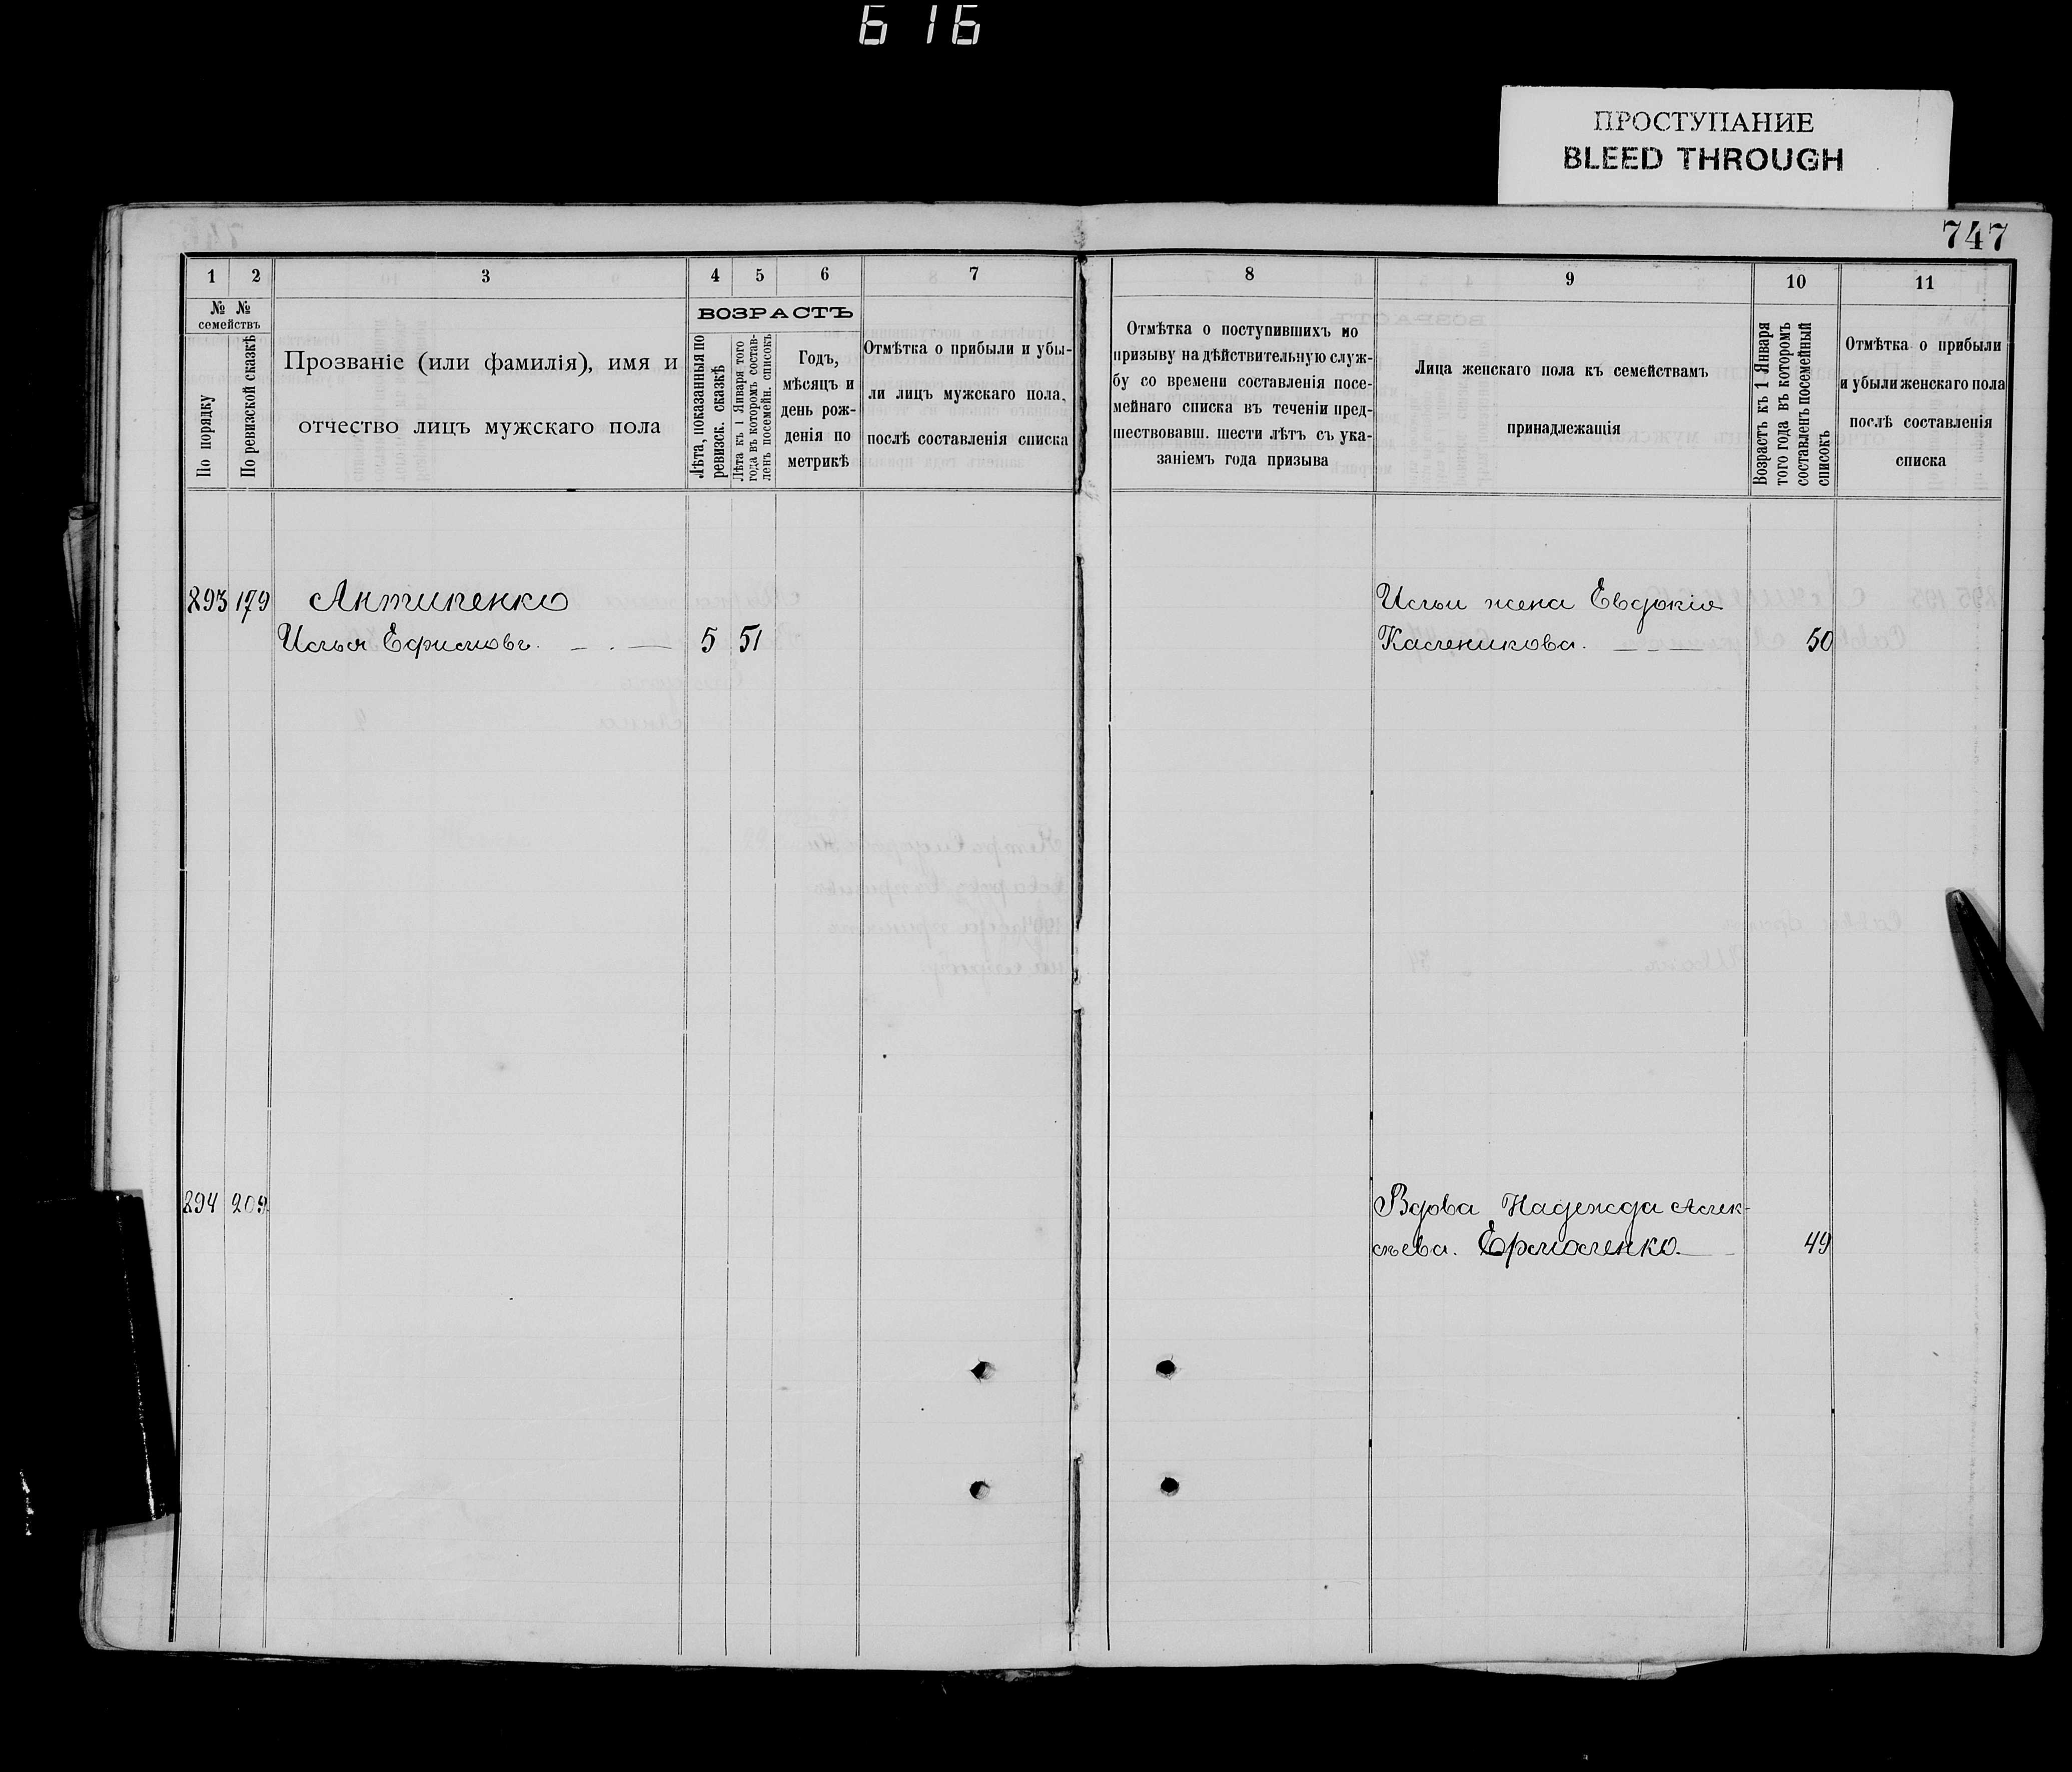 616
ПРОСТУПАНИЕ
BLEED THROUGH
747
1 2 3 4 5 6 7 8 9 10 11
№ № семействъ
По порядку
По ревизской сказкѣ
Прозваніе (или фамилія), имя и
отчество лицъ мужскаго пола
ВОЗРАСТЪ
Лѣта, показанныя по
ревизск. сказкѣ
Лѣта къ 1 Января того
года въ которомъ состав-
ленъ посемейн. списокъ
Годъ,
мѣсяцъ и
день рож-
денія по
метрикѣ
Отмѣтка о прибыли и убы-
ли лицъ мужскаго пола,
послѣ составленія списка
Отмѣтка о поступившихъ по
призыву на дѣйствительную служ-
бу со времени составленія посе-
мейнаго списка въ теченіи пред-
шествовавш. шести лѣтъ съ ука-
заніемъ года призыва
Лица женскаго пола къ семействамъ
принадлежащія
Возрастъ къ 1 Января
того года въ которомъ
составленъ посемейный
списокъ
Отмѣтка о прибыли
и убыли женскаго пола
послѣ составленія
списка
293 179 Антипенко
Илья Ефимовъ. 5 51
Ильи жена Евдокія
Каленикова. 50
294 209
Вдова Надежда Алек-
сѣева. Ермоленко 49